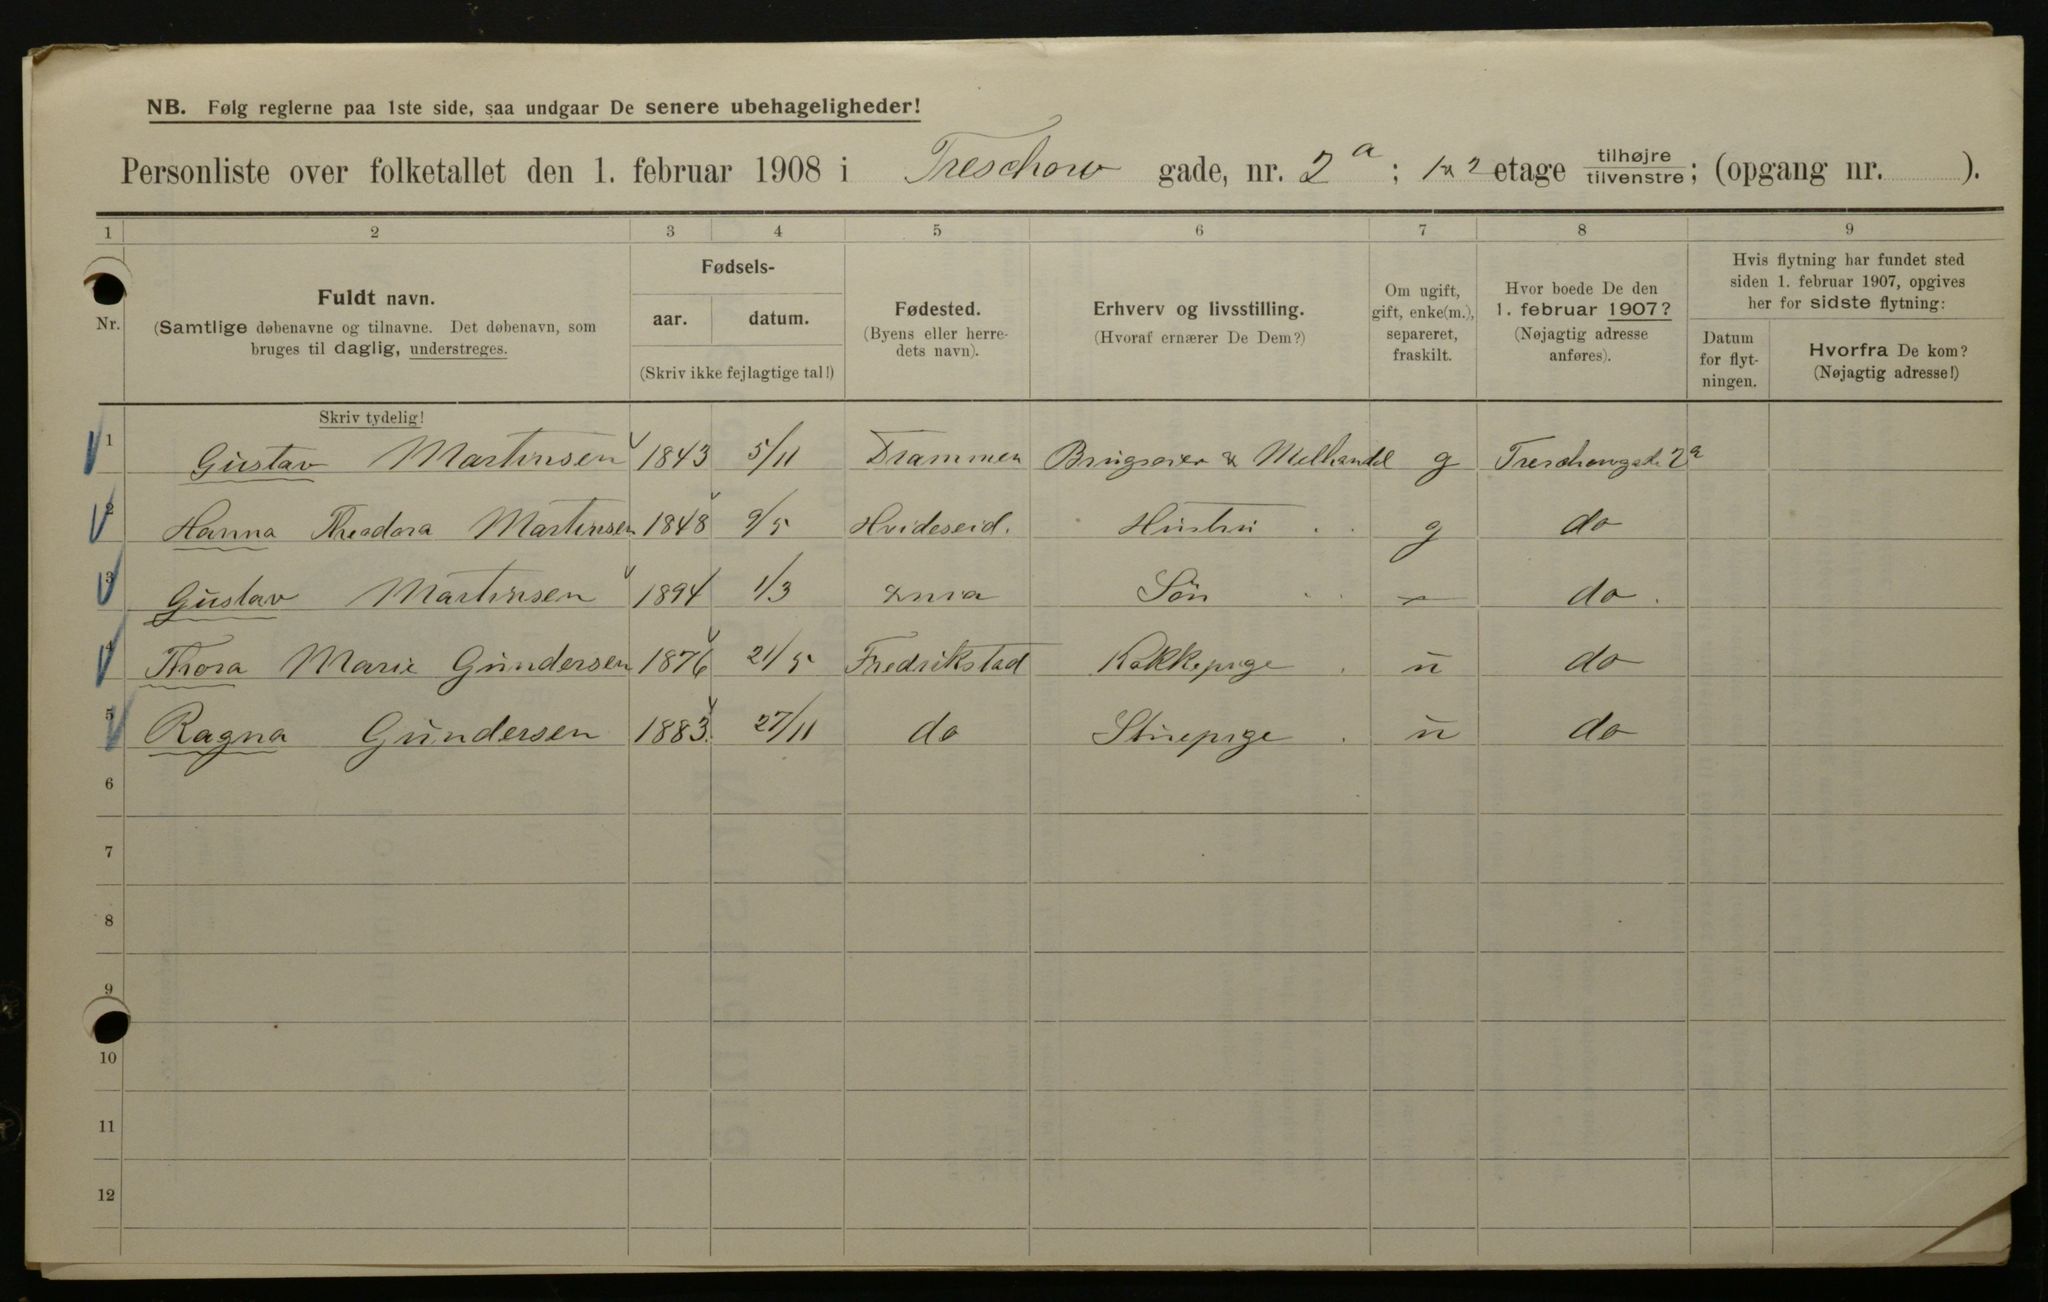 NB. Følg reglerne paa 1ste side, saa undgaar De senere ubehageligheder!
Personliste over folketallet den 1. februar 1908 i Treschow gade, nr. 2 a; 1 & 2 etage tilhøjre tilvenstre; (opgang nr. ).
1 2 3 4 5 6 7 8 9
Nr.
Fuldt navn.
(Samtlige døbenavne og tilnavne. Det døbenavn, som
bruges til daglig, understreges.
Skriv tydelig!
Fødsels-
aar. datum.
(Skriv ikke fejlagtige tal!)
Fødested.
(Byens eller herre-
dets navn).
Erhverv og livsstilling.
(Hvoraf ernærer De Dem?)
Om ugift,
gift, enke(m.),
separeret,
fraskilt.
Hvor boede De den
1. februar 1907?
(Nøjagtig adresse
anføres).
Hvis flytning har fundet sted
siden 1. februar 1907, opgives
her for sidste flytning:
Datum
for flyt-
ningen.
Hvorfra De kom?
(Nøjagtig adresse!)
1 Gustav Martinsen 1843 5/11 Drammen Brugseier & Melhandel g Treschowgade 2a
2 Hanna Theodora Martinsen 1848 9/5 Hvideseid. Hustru g do
3 Gustav Martinsen 1894 1/3 Søn do.
4 Thora Marie Gundersen 1876 21/5 Fredrikstad Kokkepige u do
5 Ragna Gundersen 1883. 27/11 do Stuepige u do
6
7
8
9
10
11
12